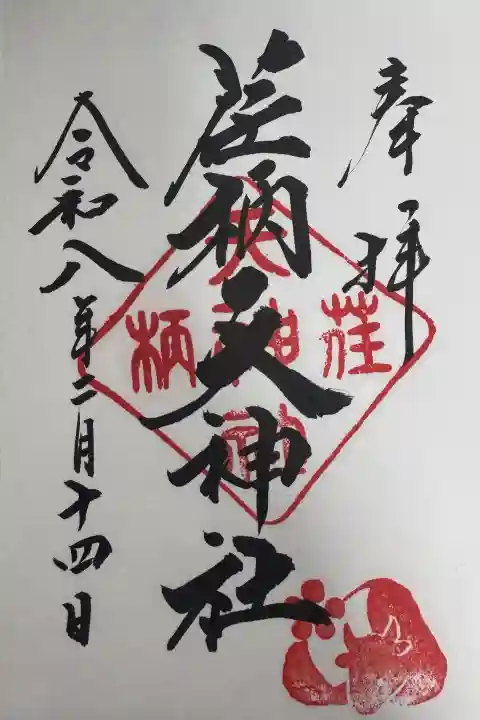 奉拝
荏柄天神社
令和八年二月十四日
荏
天神社
柄